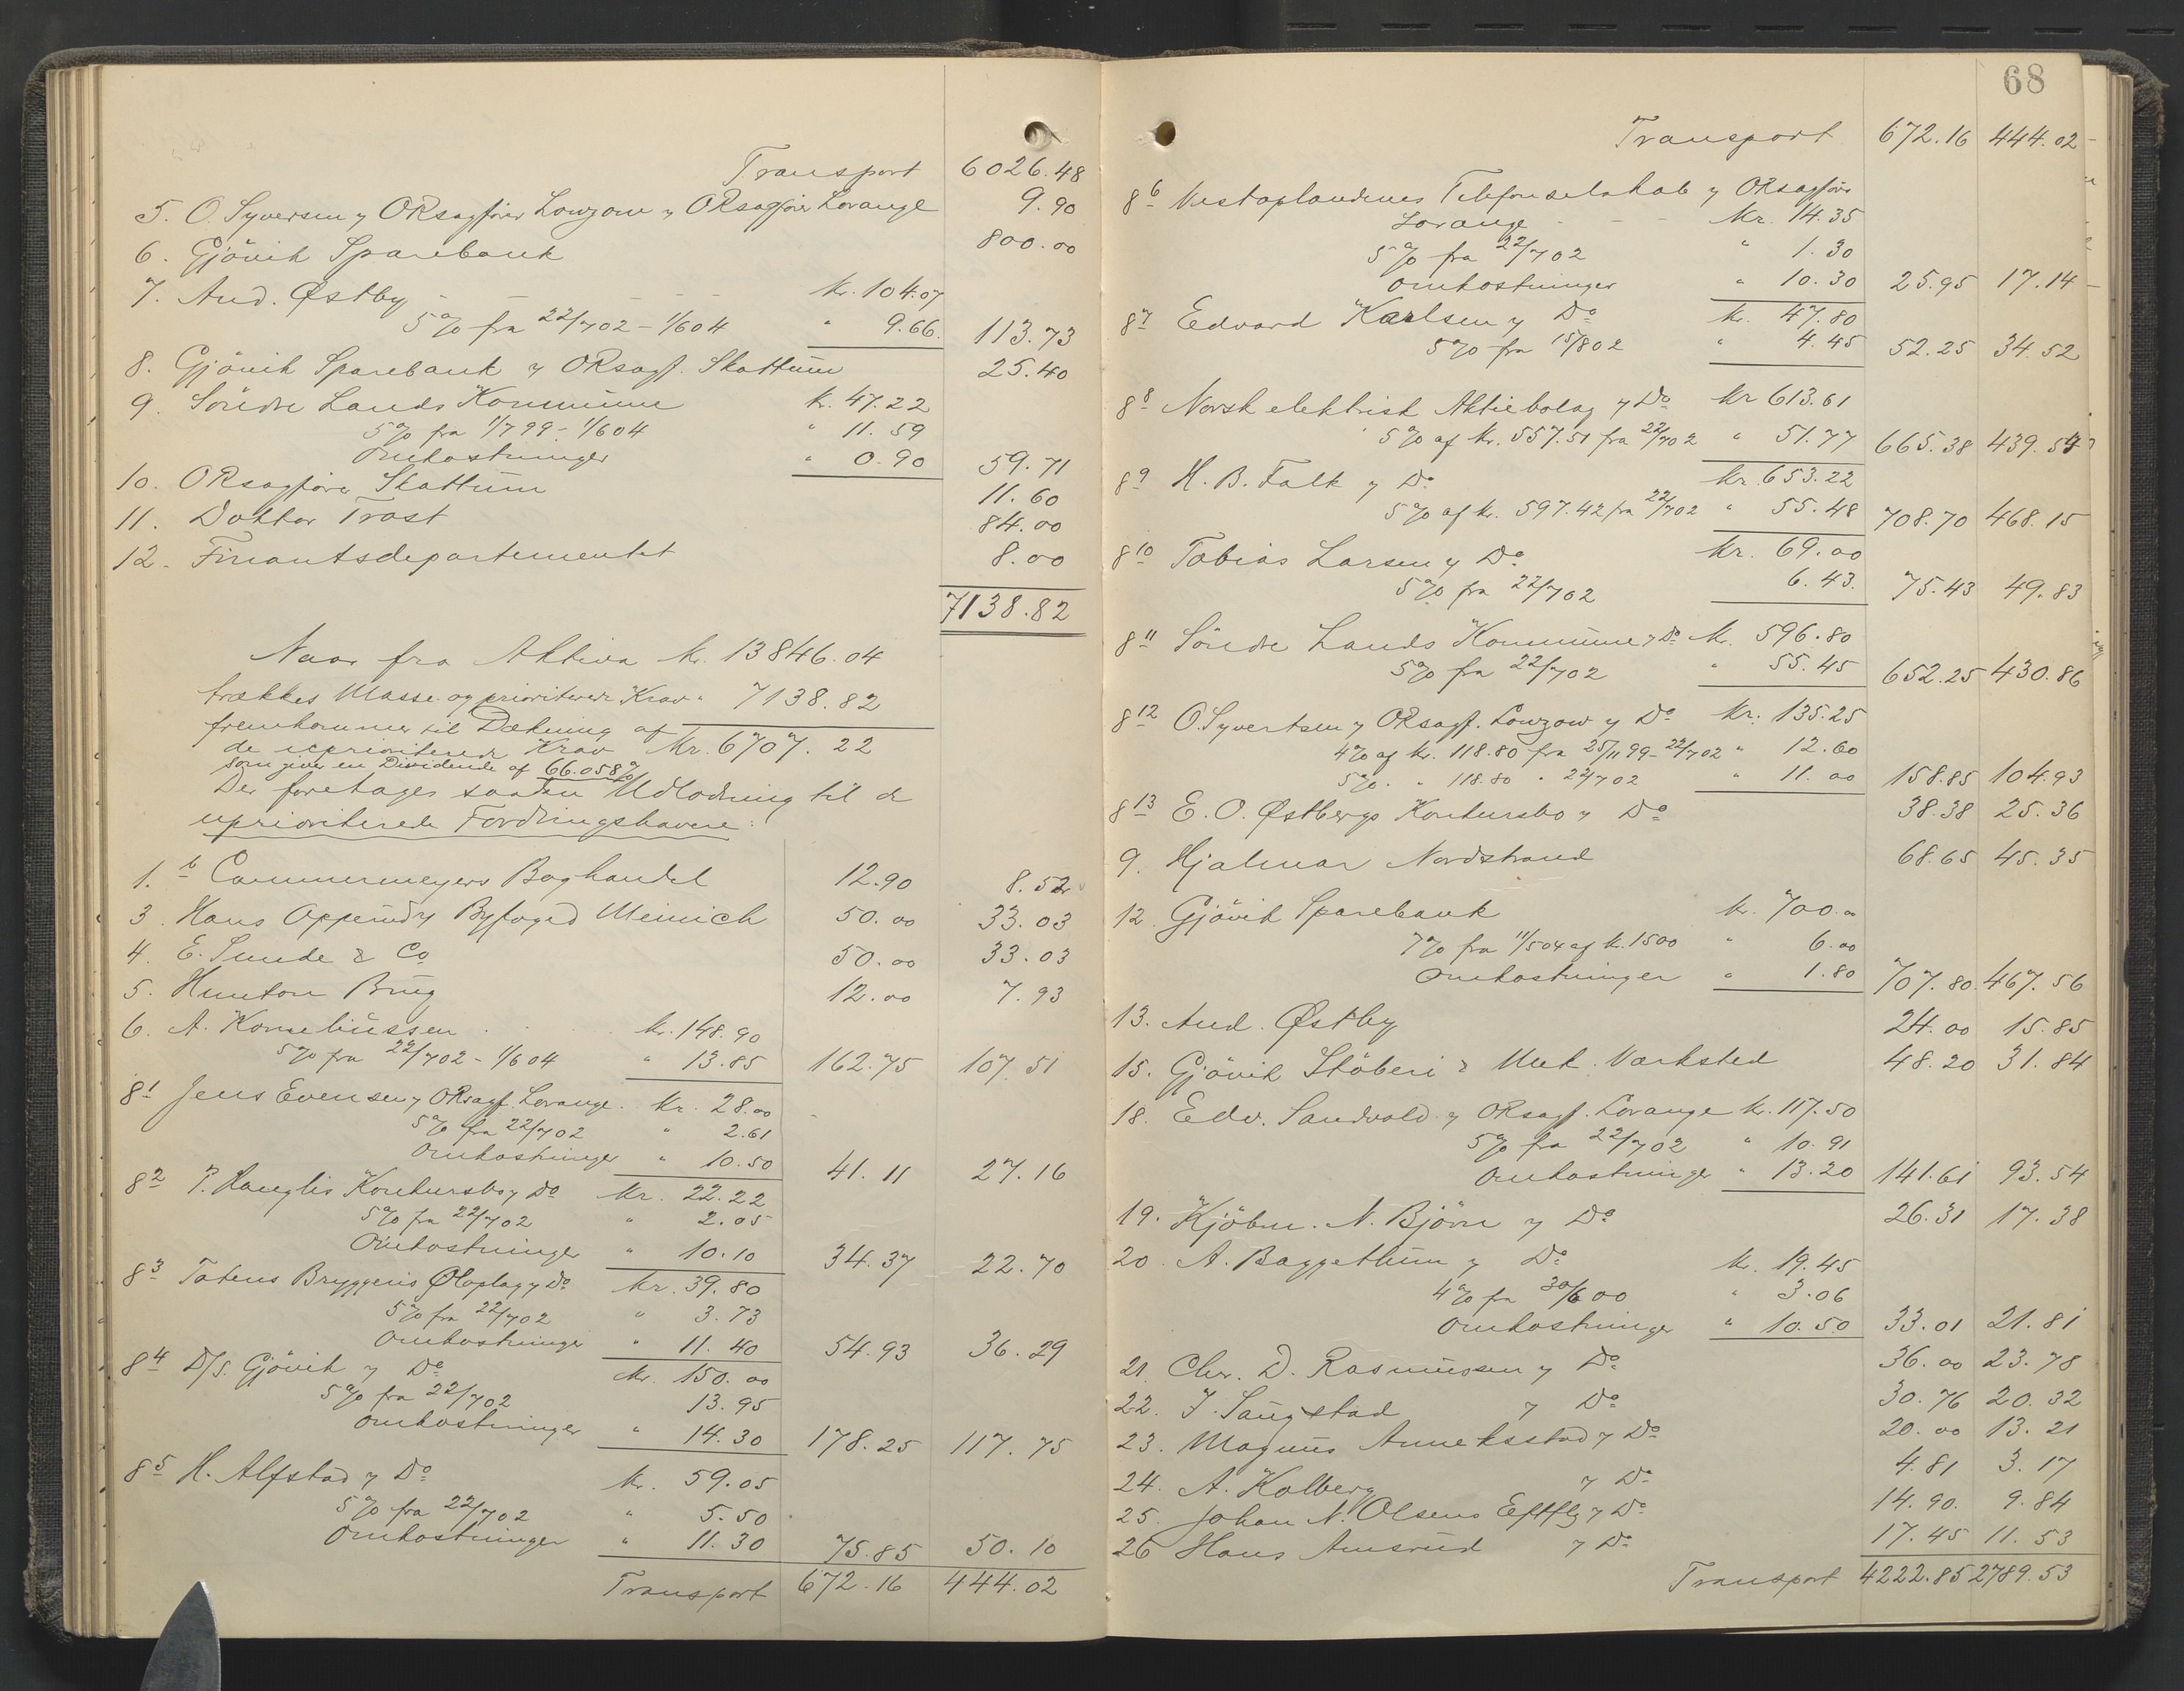 Transport 6026.48
5. O. Syversen v ORsagfører Lowzow v ORsagfører Lorange 9.90
6. Gjövik Sparebank 800.00
7. And. Østby kr. 104.07
5% fra 22/7 02 - 1/6 04 " 9.66. 113.73
8. Gjövik Sparebank v ORsagf. Skattum 25.40
9. Söndre Lands Kommune k. 47.22
5% fra 1/7 99 - 1/6 04 " 11.59
Omkostninger " 0.90 59.71
10. ORsagfører Skattum 11.60
11. Doktor Trost 84.00
12. Finantsdepartementet 8.00
7138.82
Naar fra Aktiva kr. 13846.04
trækkes Masse- og prioriterede Krav " 7138.82
fremkommer til Dækning af
de uprioriterede Krav Kr. 6707.22
som giver en Dividende af 66.058%
Der foretages saaden Udlodning til de
uprioriterede Fordringshavere:
1.b Cammermeyers Boghandel 12.90 8.52
3. Hans Oppen v Byfoged Meinich 50.00 33.03
4. E. Sunde & Co 50.00 33.03
5. Hunton Brug 12.00 7.93
6. A. Korneliussen kr. 148.90
5% fra 22/7 02 - 1/6 04 " 13.85 162.75 107.51
8 1 Jens Evensen v ORsagf. Lorange. Kr. 28.00
5% fra 22/7 02 " 2.61
Omkostninger " 10.50 41.11 27.16
8 2 P. Hauglis Konkursbo v Do Kr. 22.22
5% fra 22/7 02 " 2.05
Omkostninger " 10.10 34.37 22.70
8 3 Totens Bryggeris Øloplag v Do Kr. 39.80
5% fra 22/7 02 " 3.73
Omkostninger " 11.40 54.93 36.29
8 4 D/S. Gjövik v Do Kr. 150.00
5% fra 22/7 02 13.95
Omkostninger " 14.30 178.25 117.75
8 5 H. Alfstad v Do Kr. 59.05
5% fra 22/7 02 " 5.50
Omkostninger " 11.30 75.85 50.10
Transport 672.16 444.02
68
Transport 672.16 444.02
8 6 Vestoplandenes Telefonselskab v ORsagfører
Lorange Kr. 14.35
5% fra 22/7 02 " 1.30
Omkostninger " 10.30 25.95 17.14
8 7 Edvard Karlsen v Do Kr. 47.80
5% fra 15/8 02 " 4.45 52.25 34.52
8 8 Norsk elektrisk Aktiebolag v Do Kr 613.61
5% af Kr. 557.51 fra 22/7 02 " 51.77 665.38 439.54
8 9 H. B. Falk v Do Kr. 653.22
5% af kr. 597.42 fra 22/7 02 " 55.48 708.70 468.15
8 10 Tobias Larsen v Do Kr. 69.00
5% fra 22/7 02 6.43. 75.43 49.83
8 11 Söndre Lands Kommune v Do Kr. 596.80
5% fra 22/7 02 " 55.45 652.25 430.86
8 12 O. Syvertsen v ORsagf. Lowzow v Do Kr. 135.25
4% af kr. 118.80 fra 25/11 99 - 22/7 02 " 12.60
5% " " 118.80 " 22/7 02 " 11.00 158.85 104.93
8 13 E. O. Østbergs Konkursbo v Do 38.38 25.36
9. Hjalmar Nordstrand 68.65 45.35
12. Gjövik Sparebank kr. 700.00
7% fra 11/5 04 af k. 1500 " 6.00
Omkostninger " 1.80 707.80. 467.56
13. And. Østby 24.00 15.85
15. Gjövik Stöberi & Mek. Værksted 48.20 31.84
18. Edv. Sandvold v ORsagf. Lorange kr. 117.50
5% fra 22/7 02 " 10.91
Omkostninger " 13.20 141.61 93.54
19. Kjöbm. N. Björn v Do 26.31 17.38
20 A. Baggethun v Do kr. 19.45
4% fra 30/6 00 " 3.06
Omkostninger " 10.50 33.01 21.81
21 Chr. D. Rasmussen v Do 36.00 23.78
22. J. Saugstad v Do 30.76 20.32
23. Magnus Anneksstad v Do 20.00 13.21
24. A. Kolberg v Do 4.81 3.17
25. Johan N. Olsens Eftflg v Do 14.90. 9.84
26 Hans Amsrud v Do 17.45 11.53
Transport 4222.85 2789.53